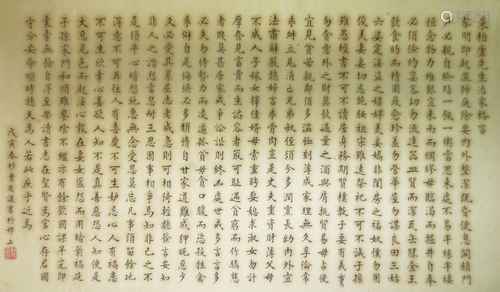 朱柏廬先生治家格言
黎明即起灑掃庭除要內外整潔既昏便息關鎖門
戶必親自檢點一粥一飯當思來處不易半絲半縷
恆念物力維艱宜未雨而綢繆毋臨渴而掘井自奉
必須儉約宴客切勿流連器具質而潔瓦缶勝金玉
飲食約而精園蔬愈珍饈勿營華屋勿謀良田三姑
六婆實淫盜之媒婢美妾嬌非閨房之福奴僕勿用
俊美妻妾切忌艷妝祖宗雖遠祭祀不可不誠子孫
雖愚經書不可不讀居身務期質樸教子要有義方
勿貪意外之財莫飲過量之酒與肩挑貿易毋占便
宜見貧苦親鄰須多溫恤刻薄成家理無久享倫常
乖舛立見消亡兄弟叔侄須分多潤寡長幼內外宜
法肅辭嚴聽婦言乖骨肉豈是丈夫重資財薄父母
不成人子嫁女擇佳婿毋索重聘娶媳求淑女勿計
厚奩見富貴而生諂容者最可恥遇貧窮而作驕態
者賤莫甚居家戒爭訟訟則終凶處世戒多言言多
必失勿恃勢力而凌逼孤寡毋貪口腹而恣殺牲禽
乖僻自是悔誤必多頹惰自甘家道難成狎昵惡少
久必受其累屈志老成急則可相倚輕聽發言安知
非人之譖愬當忍耐三思因事相爭焉知非己之不
是須平心暗想施惠無念受恩莫忘凡事當留餘地
得意不宜再往人有喜慶不可生妒忌心人有禍患
不可生欣幸心善欲人知不是真善惡恐人知便是
大惡見色而起淫心報在妻女匿怨而用暗箭禍延
子孫家門和順雖饔飧不繼亦有餘歡國課早完即
囊橐無餘自得至樂讀書志在聖賢為官心存君國
守分安命順時聽天為人若此庶乎近焉
戊寅春